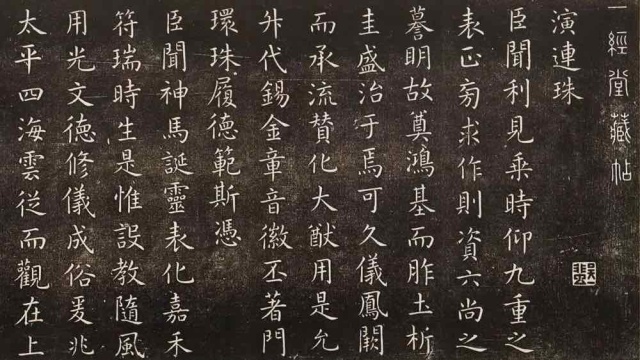 一經堂藏帖
演連珠
臣聞利見乘時仰九重之
表正旁求作則資六尚之
謩明故奠鴻基而胙土析
圭盛治于焉可久儀鳳闕
而承流贊化大猷用是允
升代錫金章音徽丕著門
環珠履德範斯憑
臣聞神馬誕靈表化嘉禾
符瑞時生是惟設教隨風
用光文德修儀成俗爰兆
太平四海雲從而觀在上